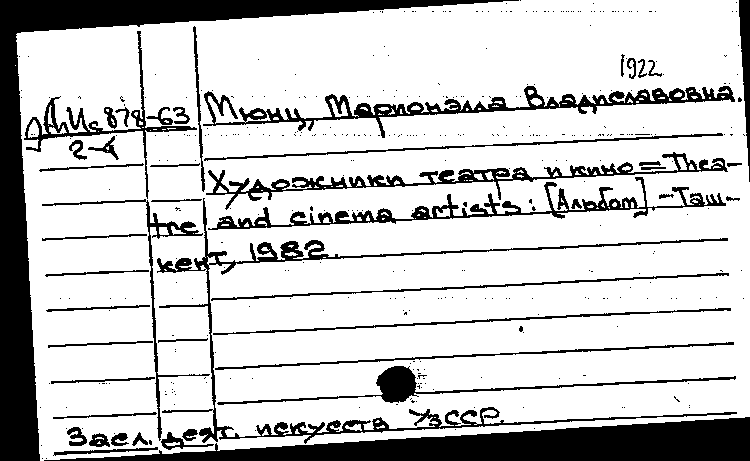 1922
878-63 Мюнц, Марионэлла Владиславовна.
2-4
Художники театра и кино = Thea-
tre and cinema artists: [Альбом]. - Таш-
кент, 1982.
Засл. деят. искусств УзССР.